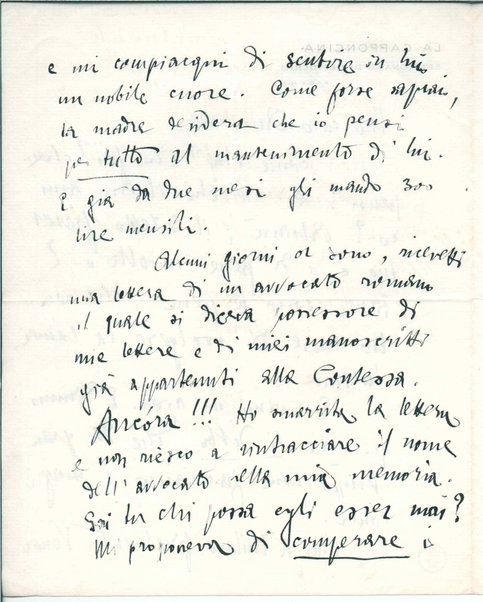 e mi compiacqui di sentire in lui
un nobile cuore. Come forse saprai,
la madre desidera che io pensi
per tutto al mantenimento di lui.
E già da due mesi gli mando 300
lire mensili.
Alcuni giorni or sono, ricevetti
una lettera di un avvocato romano
il quale si diceva possessore di
mie lettere e di miei manoscritti
già appartenuti alla Contessa.
Ancóra!!! Ho smarrita la lettera
e non riesco a rintracciare il nome
dell'avvocato nella mia memoria.
Sai tu chi possa egli esser mai?
Mi proponeva di comperare i
LA CAPPONCINA